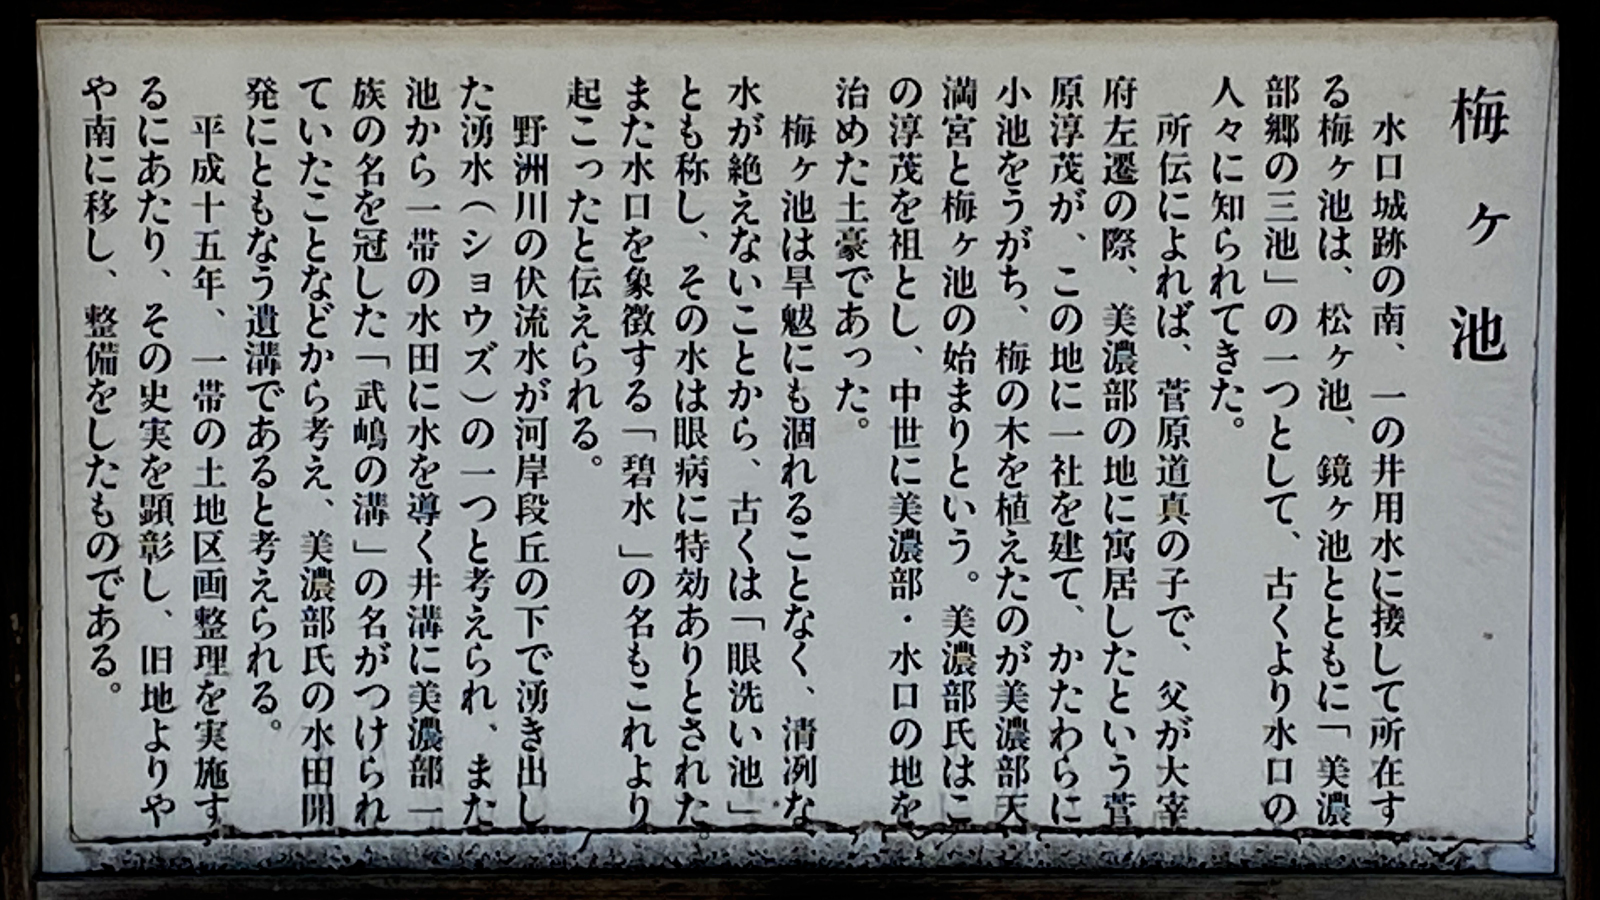 梅ヶ池
水口城跡の南、一の井用水に接して所在す
る梅ヶ池は、松ヶ池、鏡ヶ池とともに「美濃
部郷の三池」の一つとして、古くより水口の
人々に知られてきた。
所伝によれば、菅原道真の子で、父が大宰
府左遷の際、美濃部の地に寓居したという菅
原淳茂が、この地に一社を建て、かたわらに
小池をうがち、梅の木を植えたのが美濃部天
満宮と梅ヶ池の始まりという。美濃部氏はこ
の淳茂を祖とし、中世に美濃部・水口の地を
治めた土豪であった。
梅ヶ池は旱魃にも涸れることなく、清冽な
水が絶えないことから、古くは「眼洗い池」
とも称し、その水は眼病に特効ありとされた。
また水口を象徴する「碧水」の名もこれより
起こったと伝えられる。
野洲川の伏流水が河岸段丘の下で湧き出し
た湧水（ショウズ）の一つと考えられ、また
池から一帯の水田に水を導く井溝に美濃部一
族の名を冠した「武嶋の溝」の名がつけられ
ていたことなどから考え、美濃部氏の水田開
発にともなう遺溝であると考えられる。
平成十五年、一帯の土地区画整理を実施す
るにあたり、その史実を顕彰し、旧地よりや
や南に移し、整備をしたものである。